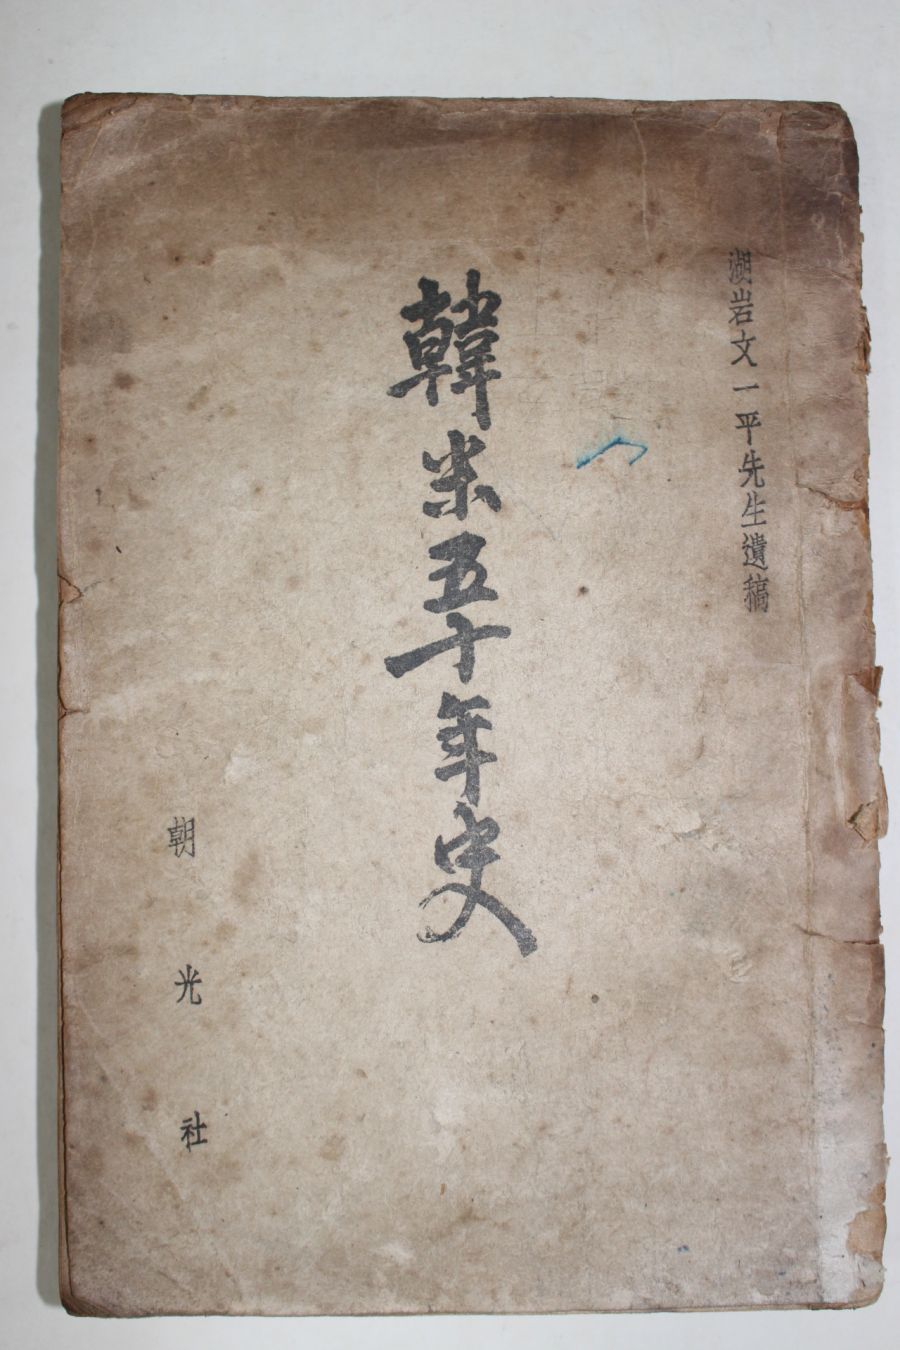 湖岩文一平先生遺稿
韓米五十年史
朝光社